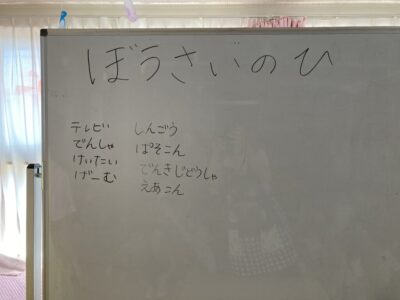 ぼうさいのひ
テレビ
でんしゃ
けいたい
げーむ
しんごう
ぱそこん
でんきじどうしゃ
えあこん